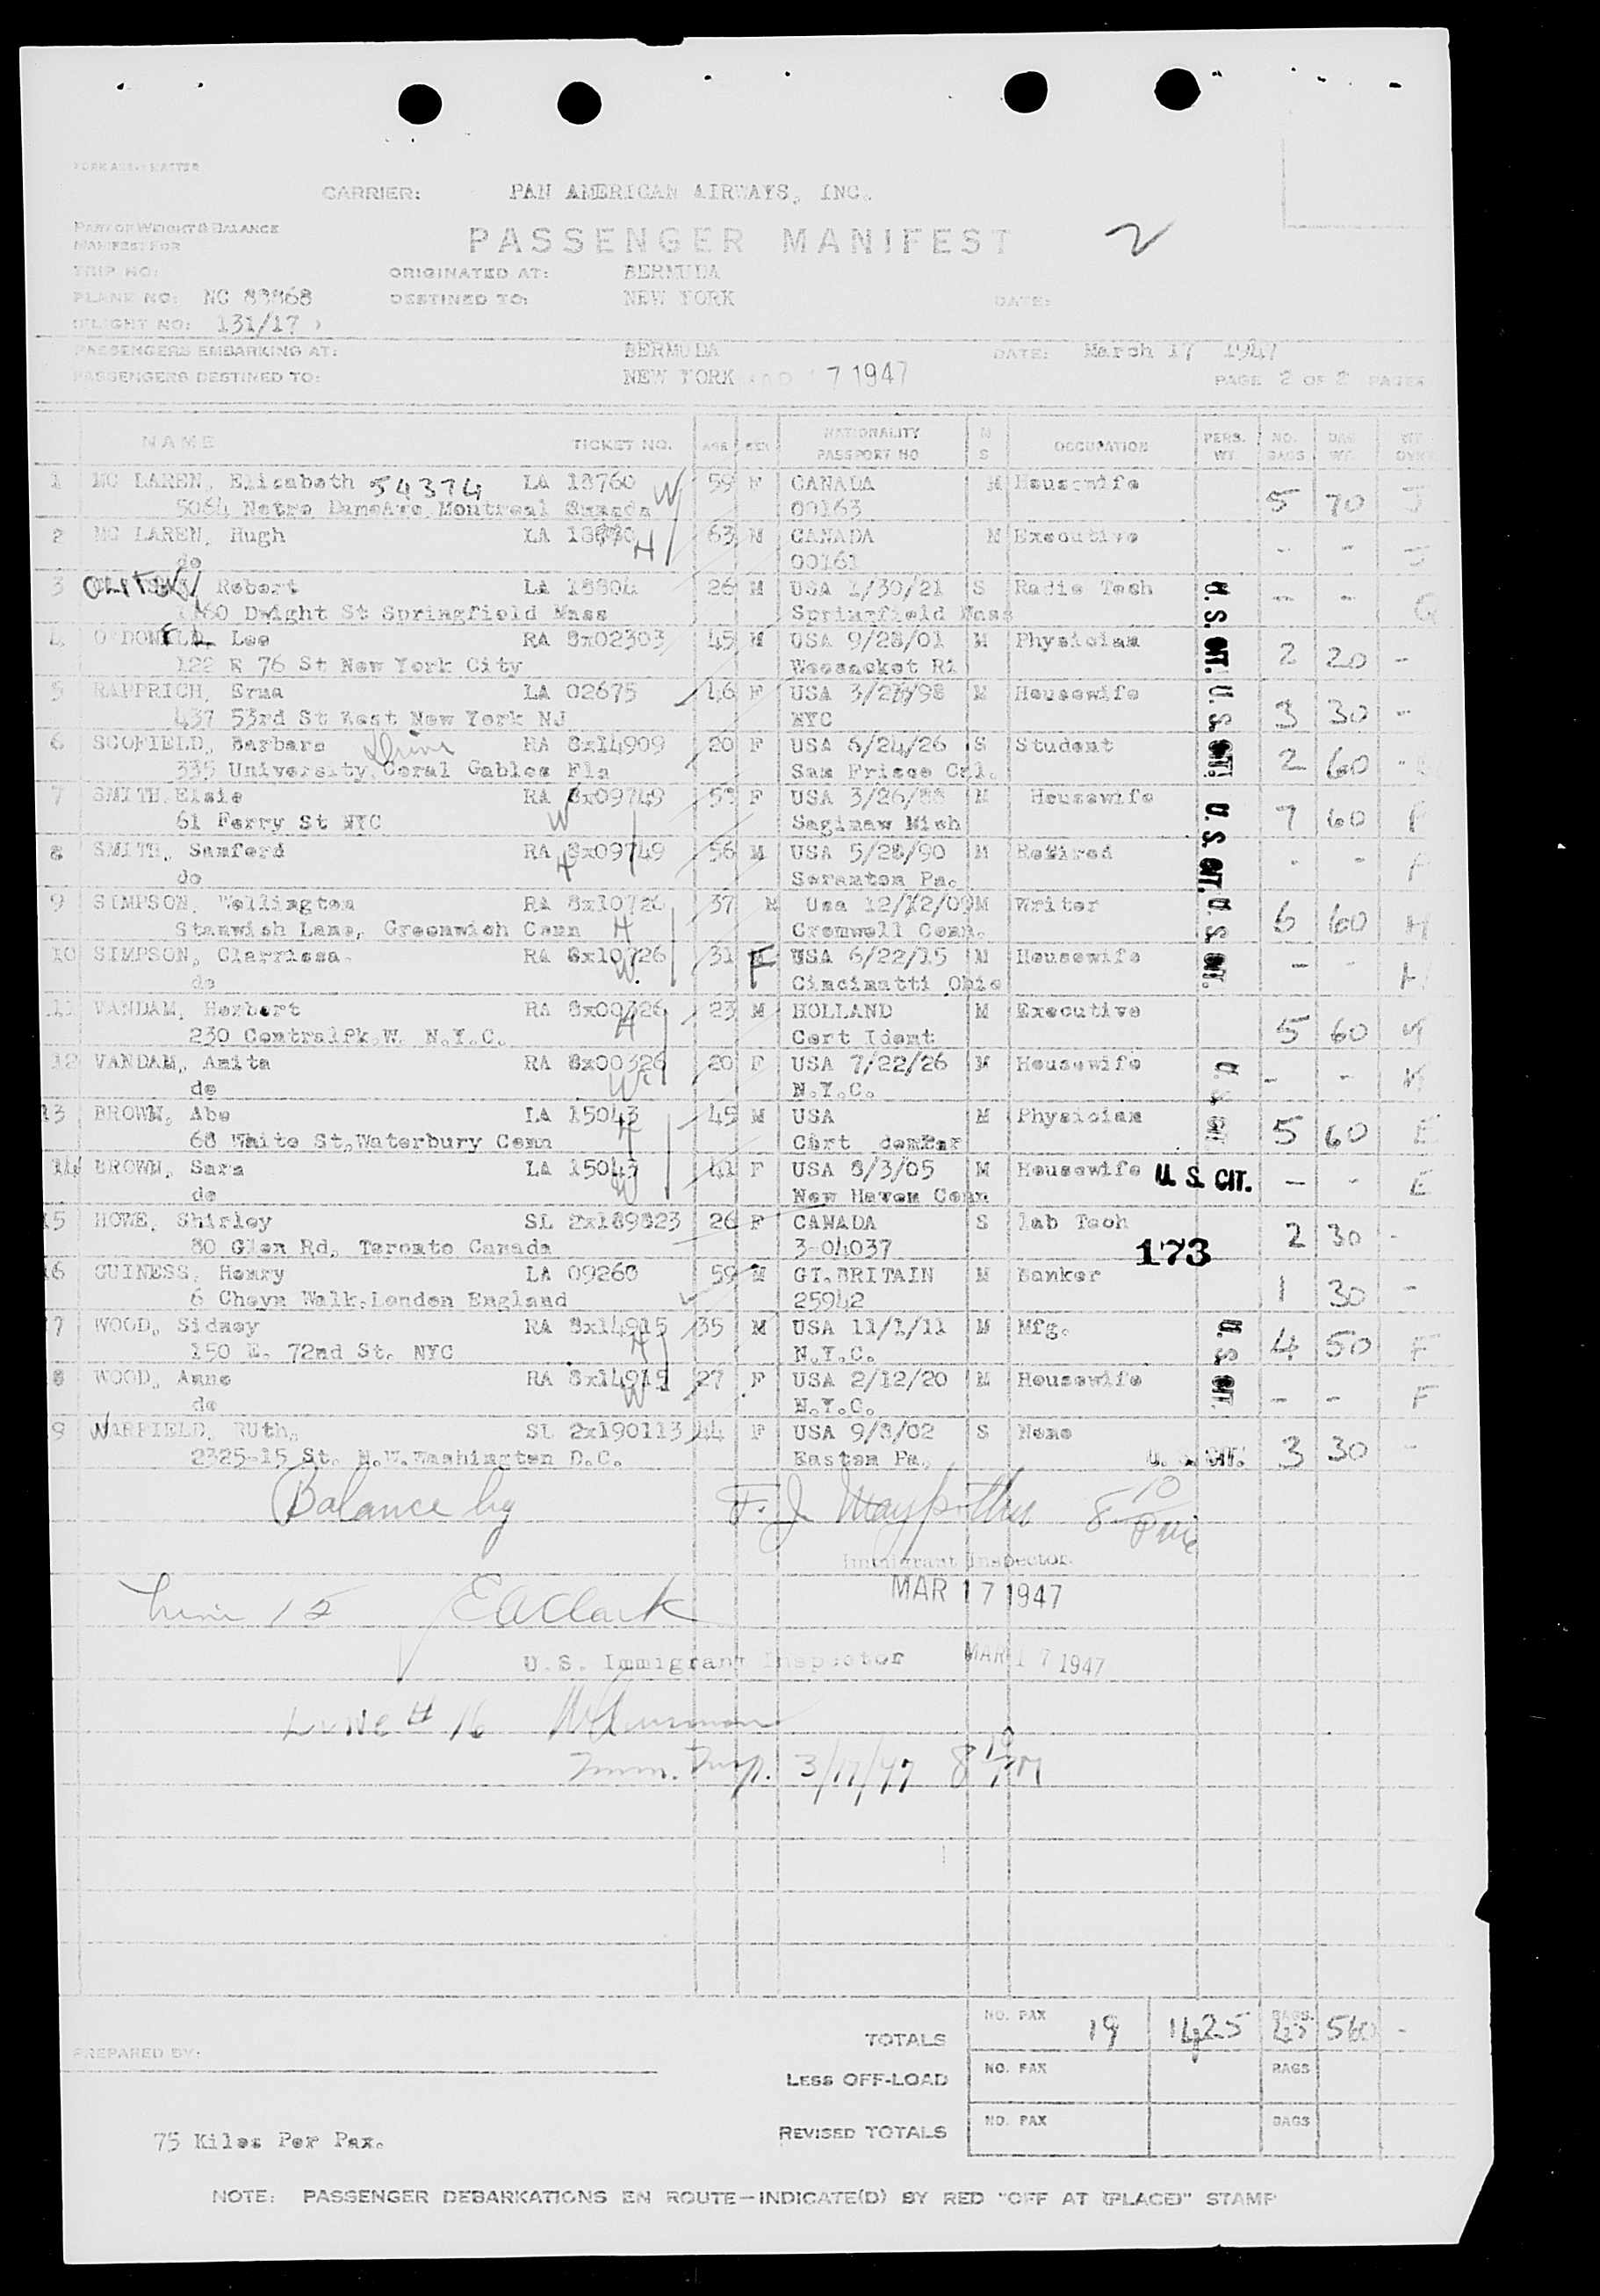 CARRIER: PAN AMERICAN AIRWAYS, INC.
PART OF WEIGHT & BALANCE
MANIFEST FOR
PASSENGER MANIFEST 2
TRIP NO: ORIGINATED AT: BERMUDA
PLANE NO: NC 88868 DESTINED TO: NEW YORK DATE:
FLIGHT NO: 131/17
PASSENGERS EMBARKING AT: BERMUDA DATE: March 17 1947
PASSENGERS DESTINED TO: NEW YORK 17 1947 PAGE 2 OF 2 PAGES
NAME TICKET NO. AGE SEX NATIONALITY PASSPORT NO M S OCCUPATION PERS. WT. NO. BAGS BAG WT.
1 MC LAREN, Elizabeth 54374 LA 18760 W 59 F CANADA M Housewife 5 70 J
5064 Notre DameAve Montreal Canada 00163
2 MC LAREN, Hugh LA H 63 M CANADA M Executive - - J
do 00161
3 Robert LA 18804 26 M USA 1/30/21 S Radio Tech U.S. CIT. - - G
Dwight St Springfield Mass Springfield Mass
4 Lee RA 8x02303 45 M USA 9/28/01 M Physician U.S. CIT. 2 20 -
122 E 76 St New York City Woosacket Ri
5 RAPPRICH, Erna LA 02675 46 F USA M Housewife U.S. CIT. 3 30 -
437 53rd St West New York NJ NYC
6 SCOFIELD, Barbara RA 8x14909 20 F USA 6/24/26 S Student 2 60 -
335 University, Coral Gables Fla San Frisco Cal.
7 SMITH, Elsie RA 8x09749 F USA 3/26/88 M Housewife U.S. CIT. 7 60 F
61 Ferry St NYC W Saginaw Mich
8 SMITH, Samford RA 8x09749 56 M USA 5/28/90 M Retired - - F
do H Scranton Pa.
9 SIMPSON, Wellington RA 8x10726 37 M Usa 12/12/09 M Writer U.S. CIT. 6 60 H
Stanwich Lane, Greenwich Conn H Cromwell Conn.
10 SIMPSON, Clarrissa. RA 8x10726 31 F USA 6/22/15 M Housewife - - H
do W. Cincinatti Ohio
11 VANDAM, Herbert RA 8x00326 23 M HOLLAND M Executive 5 60 K
230 CentralPk.W. N.Y.C. H Cert Ident
12 VANDAM, Anita RA 8x00326 20 F USA 7/22/26 M Housewife U.S. CIT. - - K
do W N.Y.C.
13 BROWN, Abe LA 15043 45 M USA M Physician 5 60 E
68 White St,Waterbury Conn H
14 BROWN, Sara LA 15043 41 F USA 8/3/05 M Housewife U.S. CIT. - - E
do W New Haven Conn
15 HOWE, Shirley SL 2x189823 26 F CANADA S lab Tech 2 30 -
80 Glen Rd, Toronto Canada 3-04037 173
16 GUINESS, Henry LA 09260 59 M GT.BRITAIN M Banker 1 30 -
6 Cheyn Walk,London England 25942
7 WOOD, Sidney RA 8x14915 35 M USA 11/1/11 M Mfg. U.S. CIT. 4 50 F
150 E. 72nd St. NYC H N.Y.C.
8 WOOD, Anne RA 8x14915 27 F USA 2/12/20 M Housewife - - F
do W N.Y.C.
9 WARFIELD, RUth, SL 2x190113 44 F USA 9/8/02 S None 3 30 -
2325-15 St. N.W.Washington D.C. Easton Pa. U.S. CIT.
Balance by F.J. 8 10
Immigrant Inspector.
MAR 17 1947
Line 15 E A Clark
U.S. Immigrant Inspector MAR 17 1947
LINE # 16
Imm. Insp. 3/17/47 8 10 PM
TOTALS NO. PAX 19 1425 BAGS 45 560 -
PREPARED BY:
LESS OFF-LOAD NO. PAX BAGS
REVISED TOTALS NO. PAX BAGS
75 Kilos Per Pax.
NOTE: PASSENGER DEBARKATIONS EN ROUTE—INDICATE(D) BY RED "OFF AT (PLACE)" STAMP